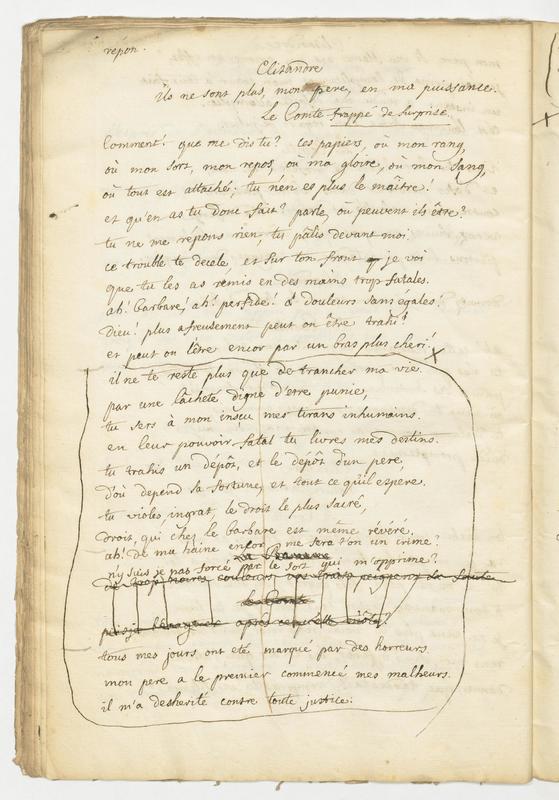 répon.
Clitandre
ils ne sont plus, mon pere, en ma puissance.
Le Comte frappé de surprise.
Comment! que me dis tu? Ces papiers, où mon rang,
où mon sort, mon repos, où ma gloire, où mon sang,
où tout est attaché; tu n'en es plus le maître!
et qu'en as tu donc fait? parle, où peuvent ils être?
tu ne me répons rien, tu pâlis devant moi.
ce trouble te decele, et sur ton front je voi
que tu les as remis en des mains trop fatales.
ah! barbare! ah! perfide! ô douleurs sans égales!
Dieu! plus afreusement peut on être trahi!
et peut on l'être encor par un bras plus cheri!
il ne te reste plus que de trancher ma vie.
par une lâcheté digne d'etre punie,
tu sers à mon insçu mes tirans inhumains.
en leur pouvoir fatal tu livres mes destins.
tu trahis un dépôt, et le dépôt d'un pere,
d'où depend sa fortune, et tout ce qu'il espere.
tu violes, ingrat, le droit le plus sacré,
droit, qui chez le barbare est même révéré.
ah! de ma haine encor me fera t'on un crime?
n'y suis je pas forcé par le sort qui m'opprime?
de trop noires couleurs vos traits peignent sa faute
le Comte
puis je l'envoyer après ce qu'elle
tous mes jours ont eté marqué par des horreurs.
mon pere a le premier commencé mes malheurs.
il m'a desherité contre toute justice: